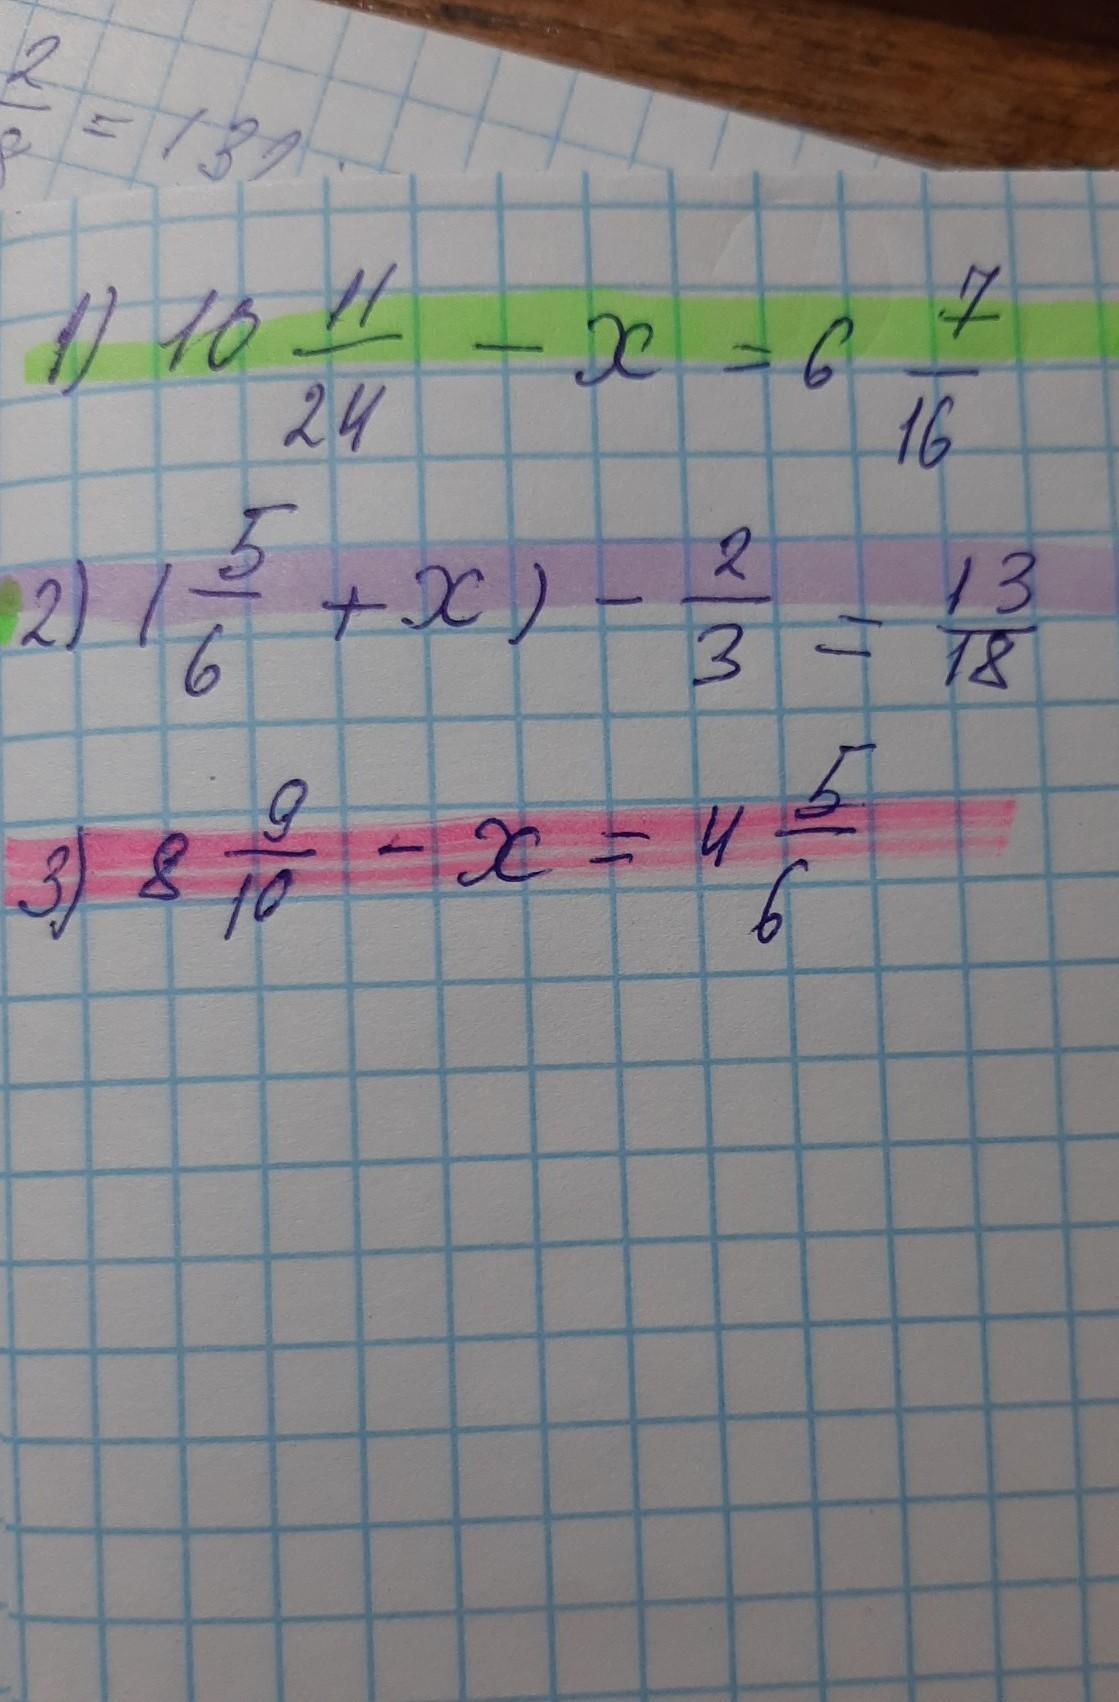 2/8 = 131
1) 10 11/24 - x = 6 7/16
2) (5/6 + x) - 2/3 = 13/18
3) 8 9/10 - x = 4 5/6